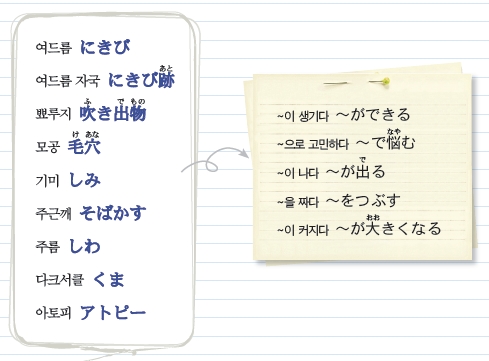 여드름 にきび
여드름 자국 にきび跡(あと)
뾰루지 吹(ふ)き出(で)物(もの)
모공 毛(け)穴(あな)
기미 しみ
주근깨 そばかす
주름 しわ
다크서클 くま
아토피 アトピー
~이 생기다 〜ができる
~으로 고민하다 〜で悩(なや)む
~이 나다 〜が出(で)る
~을 짜다 〜をつぶす
~이 커지다 〜が大(おお)きくなる